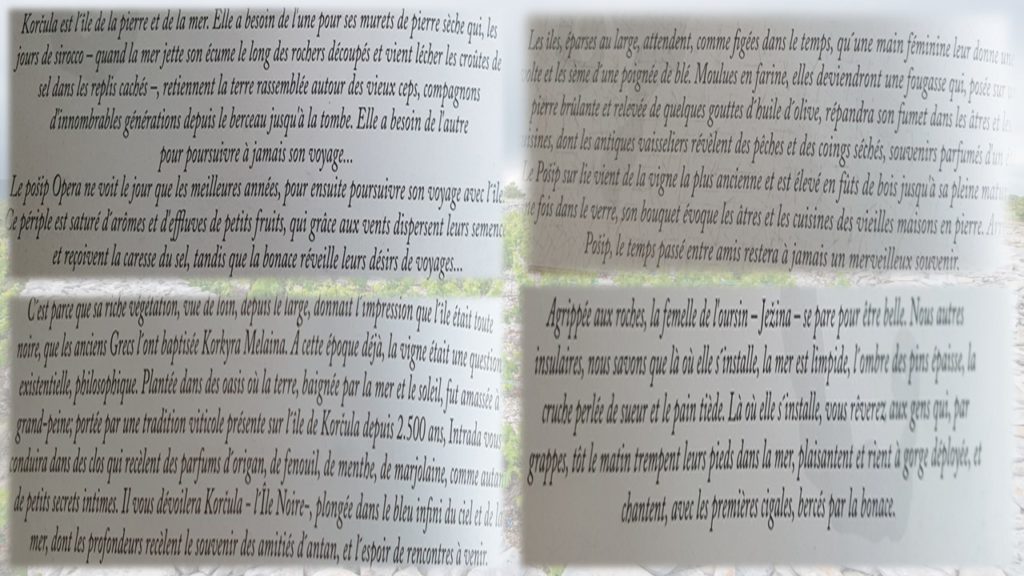 Korčula est l'île de la pierre et de la mer. Elle a besoin de l'une pour ses murets de pierre sèche qui, les
jours de sirocco – quand la mer jette son écume le long des rochers découpés et vient lécher les croûtes de
sel dans les replis cachés –, retiennent la terre rassemblée autour des vieux ceps, compagnons
d'innombrables générations depuis le berceau jusqu'à la tombe. Elle a besoin de l'autre
pour poursuivre à jamais son voyage...
Le pošip Opera ne voit le jour que les meilleures années, pour ensuite poursuivre son voyage avec l'île.
Ce périple est saturé d'arômes et d'effluves de petits fruits, qui grâce aux vents dispersent leurs semenc
et reçoivent la caresse du sel, tandis que la bonace réveille leurs désirs de voyages...
Les îles, éparses au large, attendent, comme figées dans le temps, qu'une main féminine leur donne une
volte et les sème d'une poignée de blé. Moulues en farine, elles deviendront une fougasse qui, posée sur
pierre brûlante et relevée de quelques gouttes d'huile d'olive, répandra son fumet dans les âtres et les
cuisines, dont les antiques vaisseliers révèlent des pêches et des coings séchés, souvenirs parfumés d'un
Le Pošip sur lie vient de la vigne la plus ancienne et est élevé en fûts de bois jusqu'à sa pleine matur
ne fois dans le verre, son bouquet évoque les âtres et les cuisines des vieilles maisons en pierre.
Pošip, le temps passé entre amis restera à jamais un merveilleux souvenir.
C'est parce que sa riche végétation, vue de loin, depuis le large, donnait l'impression que l'île était toute
noire, que les anciens Grecs l'ont baptisée Korkyra Melaina. À cette époque déjà, la vigne était une question
existentielle, philosophique. Plantée dans des oasis où la terre, baignée par la mer et le soleil, fut amassée à
grand-peine, portée par une tradition viticole présente sur l'île de Korčula depuis 2.500 ans, Intrada vous
conduira dans des clos qui recèlent des parfums d'origan, de fenouil, de menthe, de marjolaine, comme autan
de petits secrets intimes. Il vous dévoilera Korčula - l'Île Noire–, plongée dans le bleu infini du ciel et de la
mer, dont les profondeurs recèlent le souvenir des amitiés d'antan, et l'espoir de rencontres à venir.
Agrippée aux roches, la femelle de l'oursin – Ježina – se pare pour être belle. Nous autres
insulaires, nous savons que là où elle s'installe, la mer est limpide, l'ombre des pins épaisse, la
cruche perlée de sueur et le pain tiède. Là où elle s'installe, vous rêverez aux gens qui, par
grappes, tôt le matin trempent leurs pieds dans la mer, plaisantent et rient à gorge déployée, et
chantent, avec les premières cigales, bercés par la bonace.